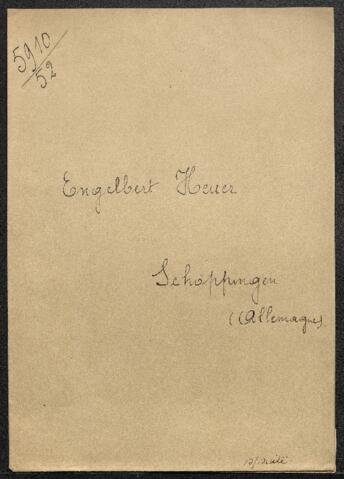 5910/52
Engelbert Heuer
Schöppingen
(Allemagne)